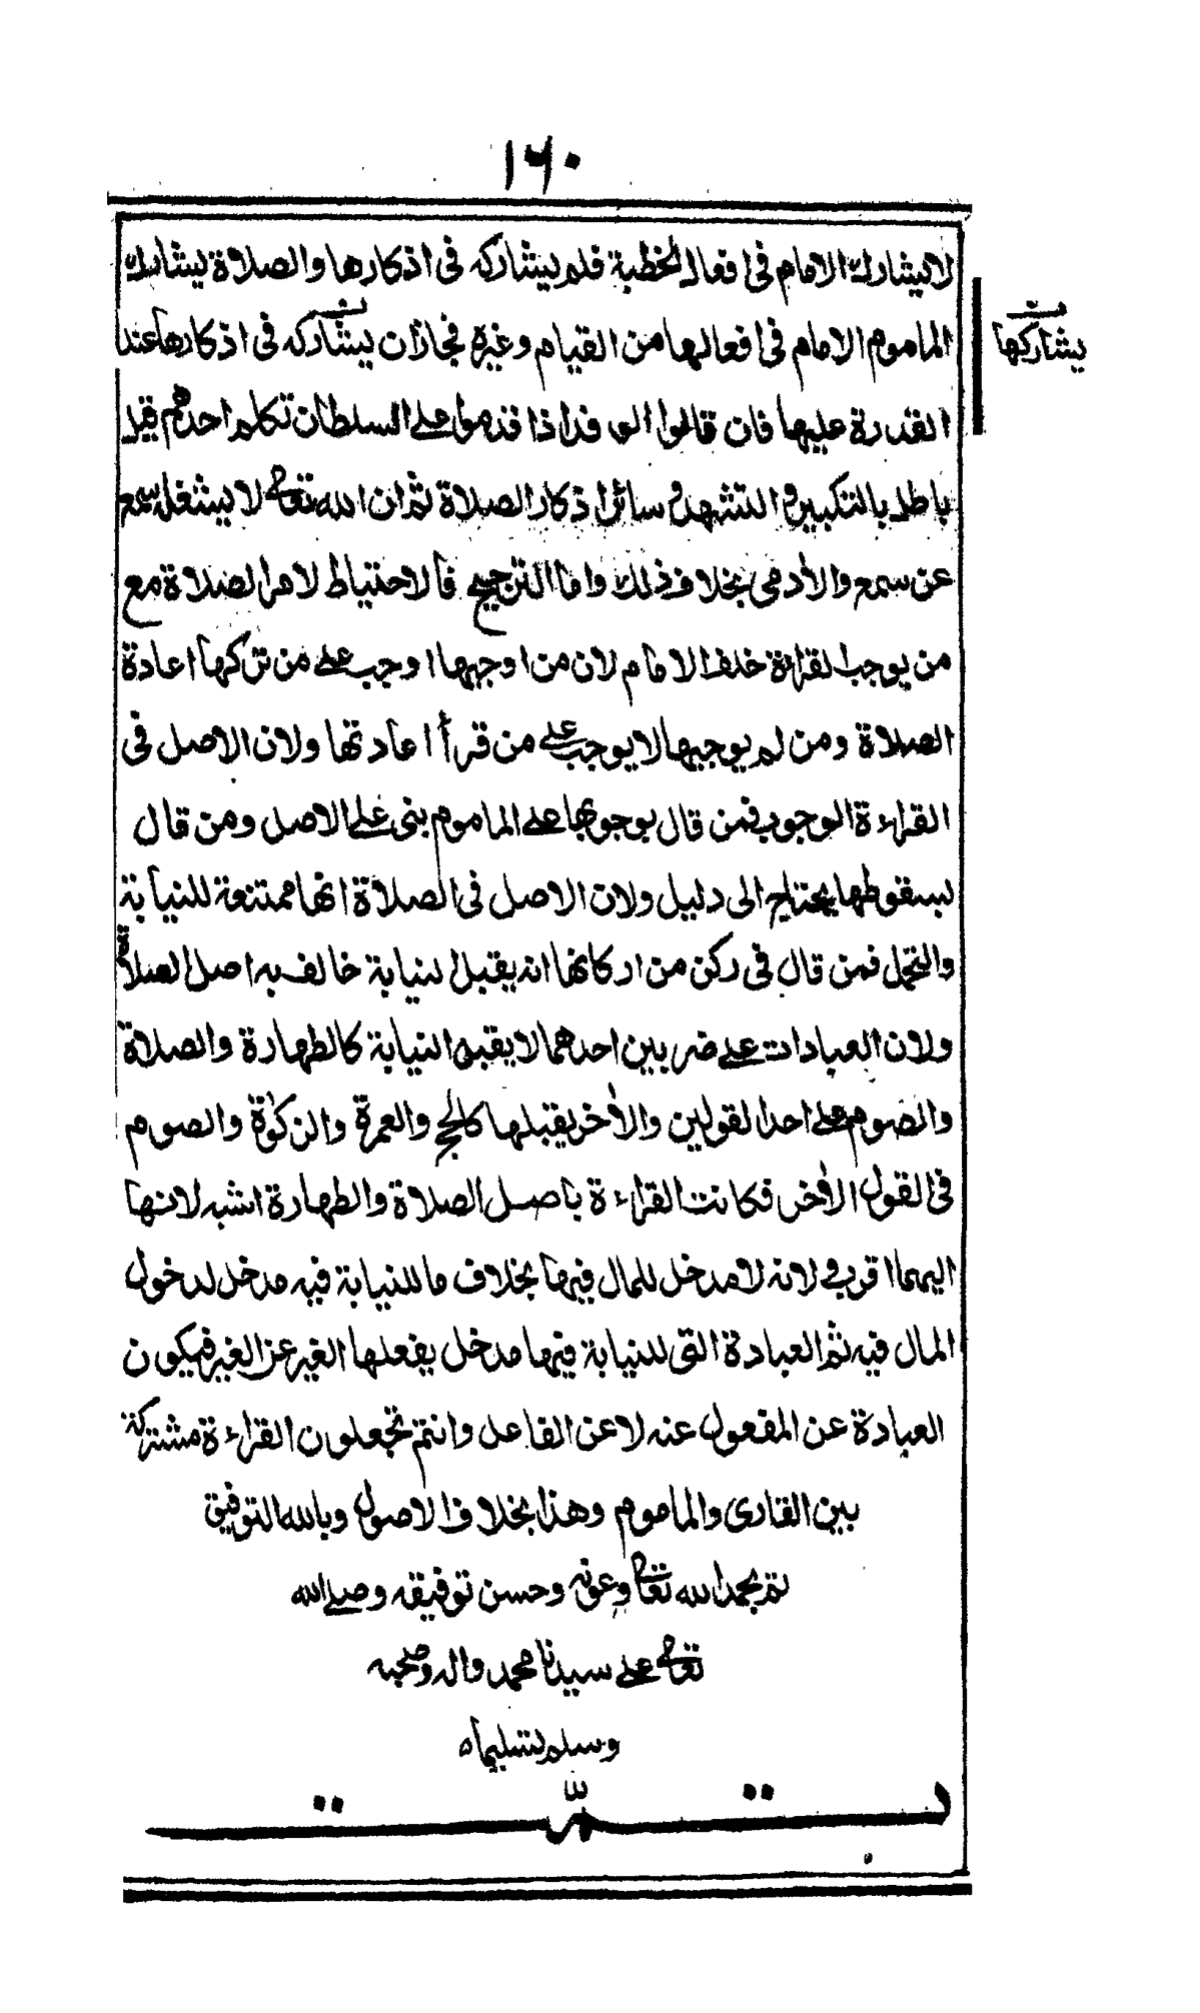 ١٦٠
لا يشارك الامام فى افعال الخطبة فلم يشاركه فى اذكارها والصلاة يشارك
الماموم الامام فى افعالها من القيام وغيره فجاز ان يشاركه فى اذكارها عند
يشاركها
القدرة عليها فان قالوا الوفد اذا قدموا على السلطان تكلم احدهم قيل
باطل بالتكبير والتشهد وسائر اذكار الصلاة ثم ان الله تعالى لا يشغله سمع
عن سمع والأدمى بخلاف ذلك واما الترجيح فالاحتياط لامر الصلاة مع
من يوجب القراءة خلف الامام لان من اوجبها اوجب على من تركها اعادة
الصلاة ومن لم يوجبها لا يوجب على من قرأ اعادتها ولان الاصل فى
القراءة الوجوب فمن قال بوجوبها على الماموم بنى على الاصل ومن قال
بسقوطها يحتاج الى دليل ولان الاصل فى الصلاة انها ممتنعة للنيابة
والتحمل فمن قال فى ركن من اركانها انه يقبل النيابة خالف به اصل الصلاة
ولان العبادات على ضربين احدهما لا يقبل النيابة كالطهارة والصلاة
والصوم على احد القولين والأخر يقبلها كالحج والعمرة والزكوة والصوم
فى القول الأخر فكانت القراءة باصل الصلاة والطهارة اشبه لانها
اليهما اقرب ولانه لا مدخل للمال فيها بخلاف ما للنيابة فيه مدخل لدخول
المال فيه ثم العبادة التى للنيابة فيها مدخل يفعلها الغير عن الغير فيكون
العبادة عن المفعول عنه لا عن الفاعل وانتم تجعلون القراءة مشتركة
بين القارى والماموم وهذا بخلاف الاصول وبالله التوفيق
تم بحمد الله تعالى وعونه وحسن توفيقه وصلى الله
تعالى على سيدنا محمد واله وصحبه
وسلم تسليما
تمت